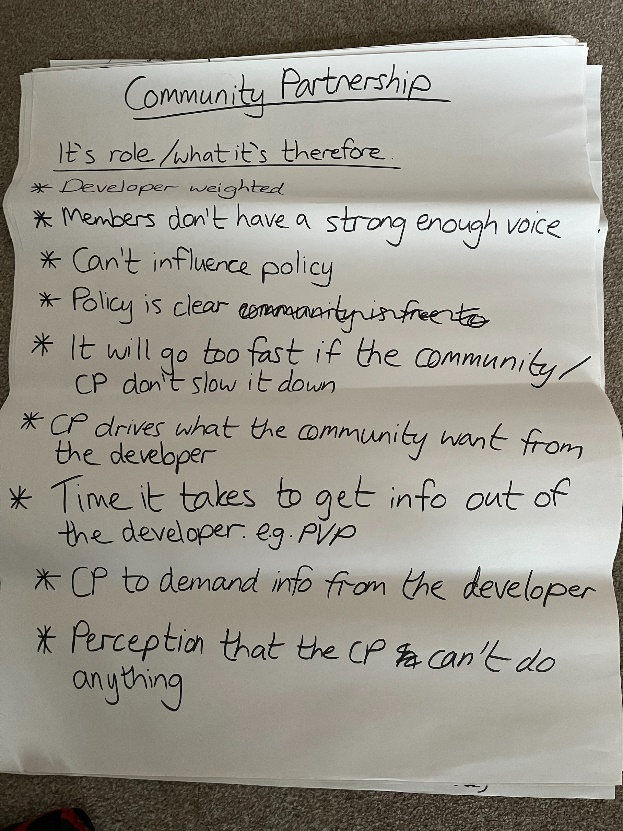 Community Partnership
It's role/what it's therefore.
* Developer weighted
* Members don't have a strong enough voice
* Can't influence policy
* Policy is clear community is free to
* It will go too fast if the community/
CP don't slow it down
* CP drives what the community want from
the developer
* Time it takes to get info out of
the developer. e.g. PVP
* CP to demand info from the developer
* Perception that the CP can't do
anything